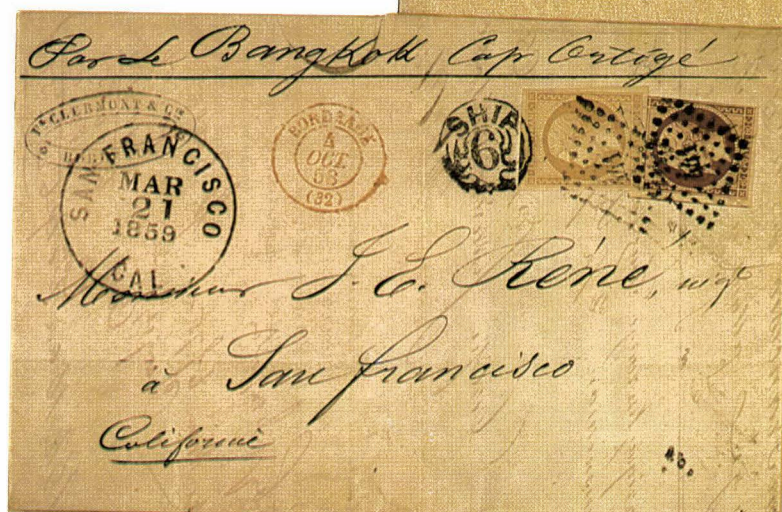 Par Le Bangkok Cap Ortigé
CLERMONT & Cie
SAN FRANCISCO
MAR
21
1859
CAL
BORDEAUX
4
OCT
58
(32)
SHIP
6
Monsieur J. E. René, négt
à San francisco
Californie